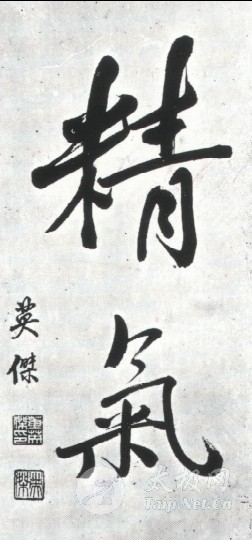 精氣
英傑
太极网
Taiji.Net.Cn